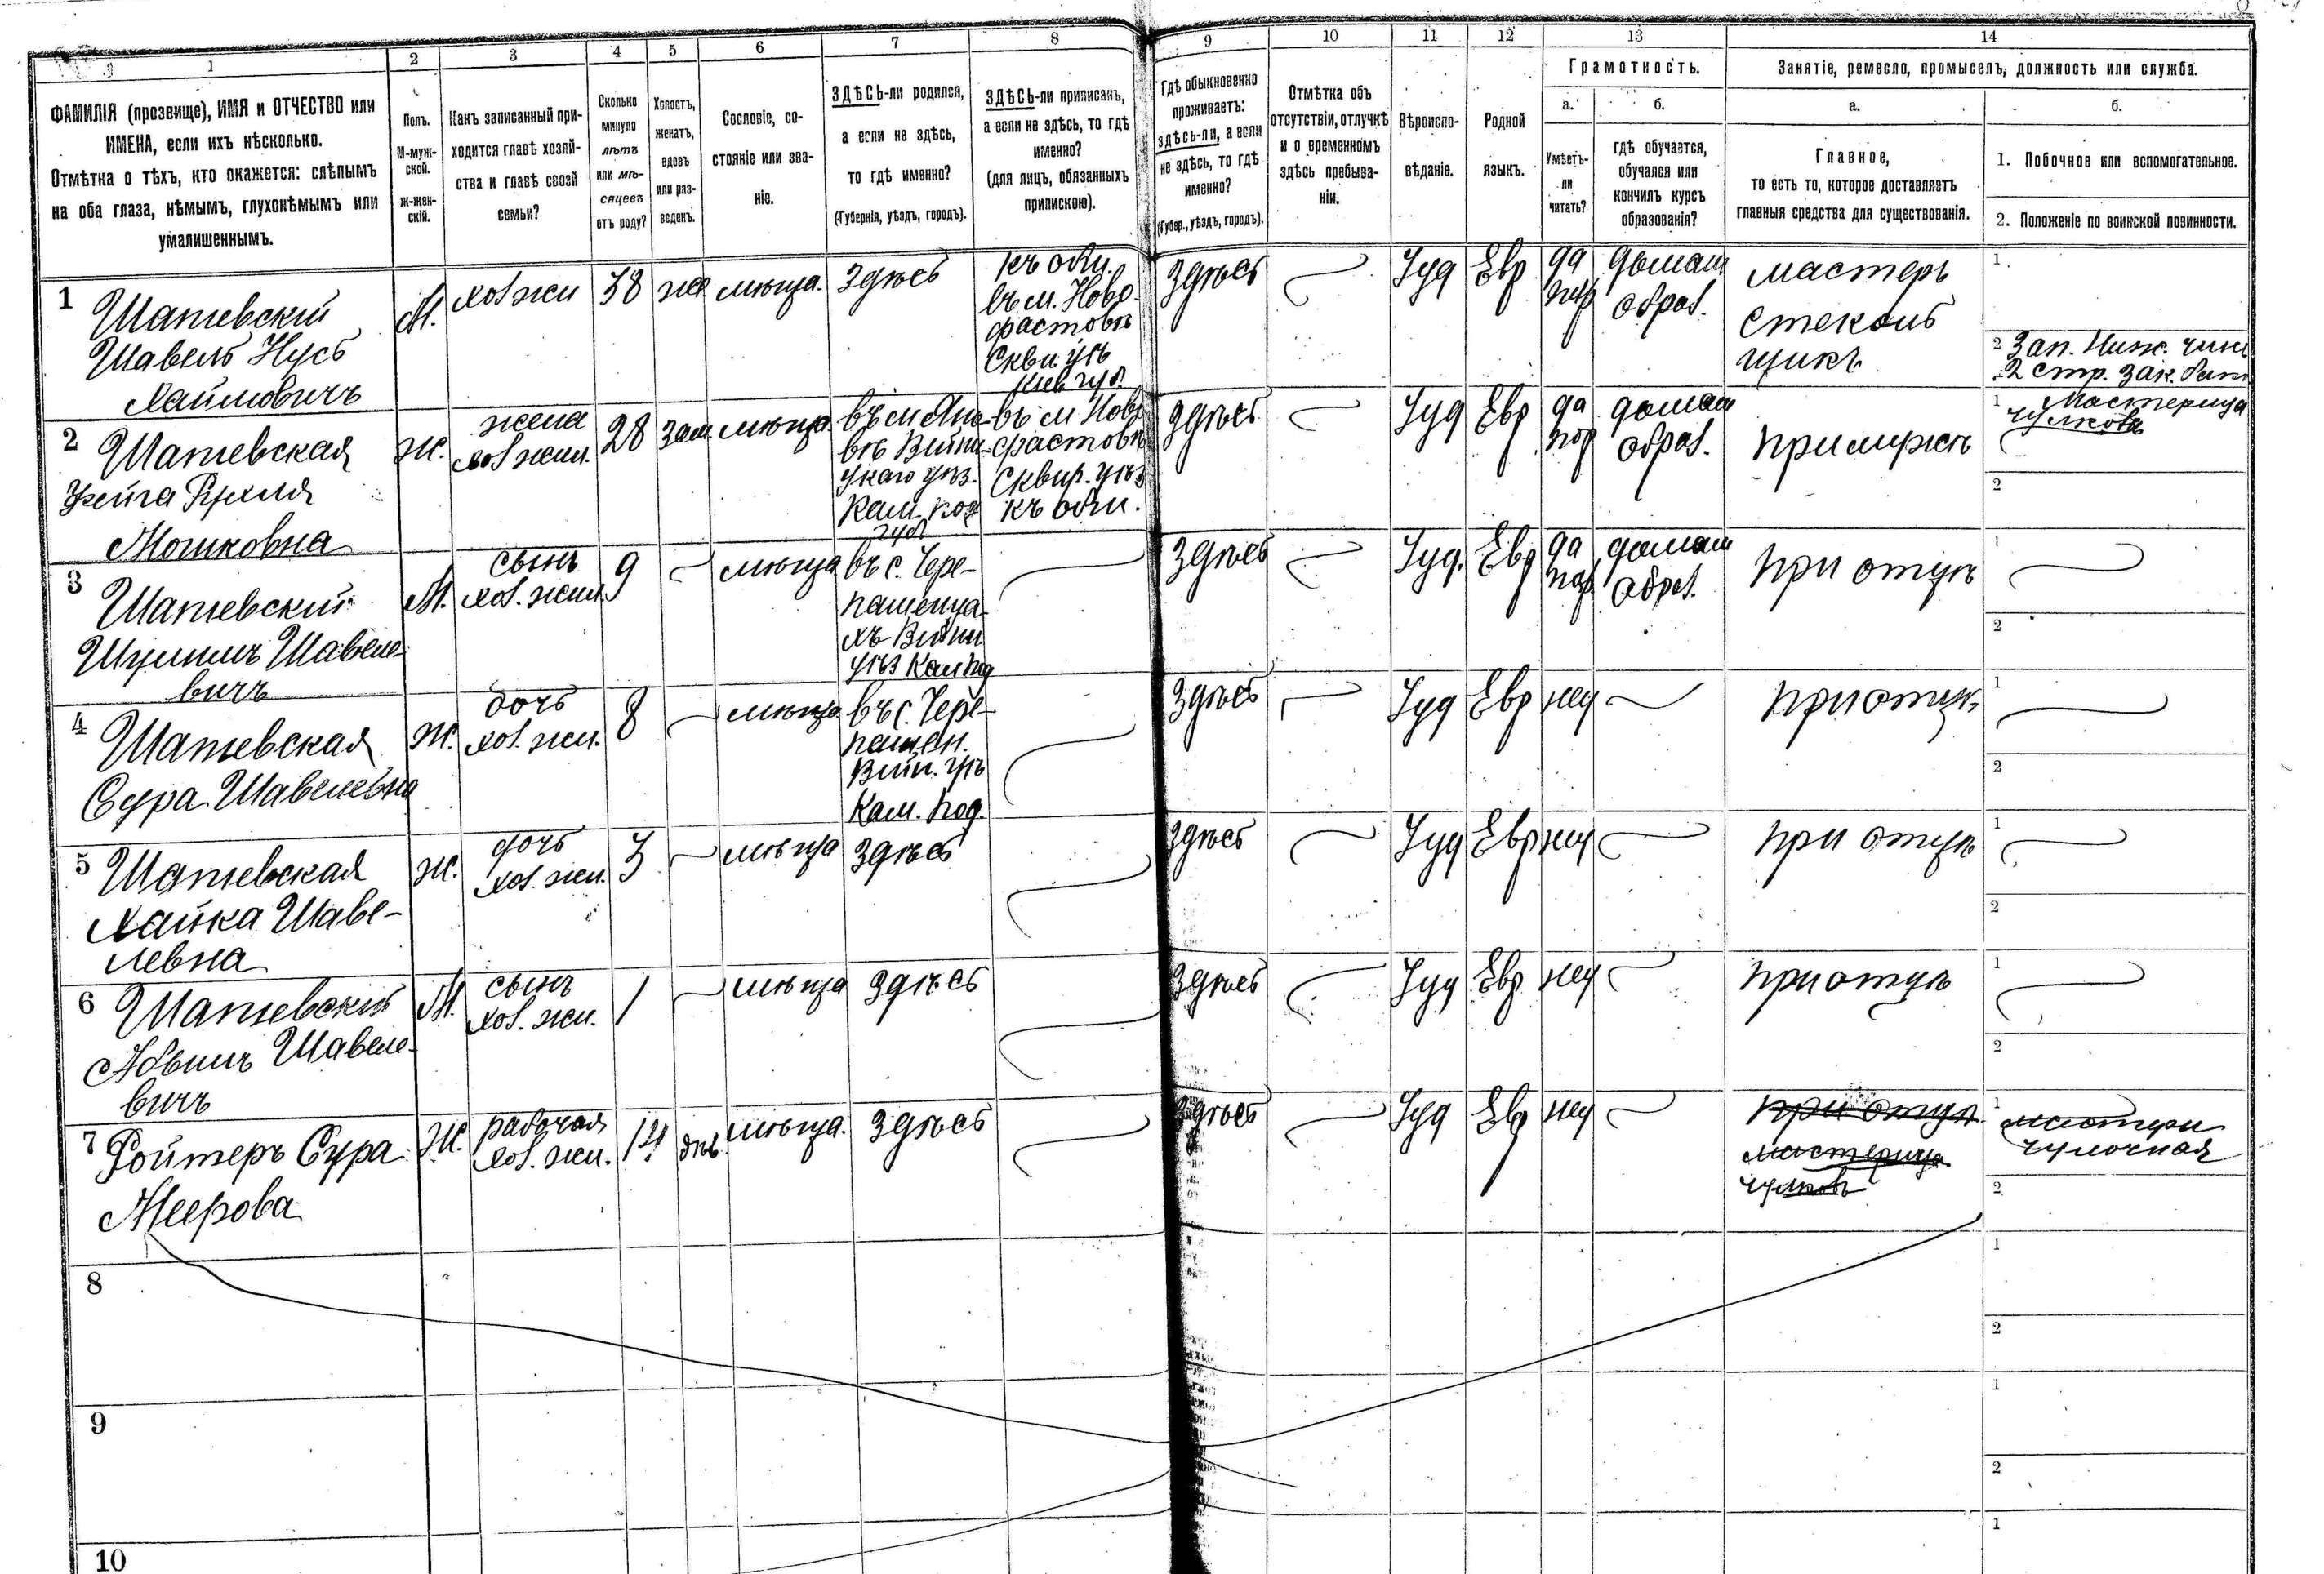 1 2 3 4 5 6 7 8 9 10 11 12 13 14
ФАМИЛІЯ (прозвище), ИМЯ и ОТЧЕСТВО или
ИМЕНА, если ихъ нѣсколько.
Отмѣтка о тѣхъ, кто окажется: слѣпымъ
на оба глаза, нѣмымъ, глухонѣмымъ или
умалишеннымъ.
Полъ.
М-муж-
ской.
Ж-жен-
скій.
Какъ записанный при-
ходится главѣ хозяй-
ства и главѣ своей
семьи?
Сколько
минуло
лѣтъ
или мѣ-
сяцевъ
отъ роду?
Холостъ,
женатъ,
вдовъ
или раз-
веденъ.
Сословіе, со-
стояніе или зва-
ніе.
ЗДѢСЬ-ли родился,
а если не здѣсь,
то гдѣ именно?
(Губернія, уѣздъ, городъ).
ЗДѢСЬ-ли приписанъ,
а если не здѣсь, то гдѣ
именно?
(для лицъ, обязанныхъ
припискою).
Гдѣ обыкновенно
проживаетъ:
здѣсь-ли, а если
не здѣсь, то гдѣ
именно?
(Губер., уѣздъ, городъ).
Отмѣтка объ
отсутствіи, отлучкѣ
и о временномъ
здѣсь пребыва-
ніи.
Вѣроиспо-
вѣданіе.
Родной
языкъ.
Грамотность.
а.
Умѣетъ-
ли
читать?
б.
гдѣ обучается,
обучался или
кончилъ курсъ
образованія?
Занятіе, ремесло, промыселъ, должность или служба.
а.
Главное,
то есть то, которое доставляетъ
главныя средства для существованія.
б.
1. Побочное или вспомогательное.
2. Положеніе по воинской повинности.
1
Шатевский
Шавель Нусь
Хаимовичъ
М.
хоз жи
38
же
мѣща.
здѣсь
къ общ.
въ м. Ново-
фастовѣ
Сквиуѣ
Киев губ.
здѣсь
Іуд
Евр
да
домаш
образ.
мастеръ
стеколь
щикъ
1
2 Зап. Ниж. чин
2
Шатевская
Рухля
Мошковна
Ж.
жена
хоз жил.
28
зам.
мѣща.
Винни-
цкаго уѣз.
Кам. под
губ
въ м Ново
фастовѣ
Сквир. уѣз
къ общ.
здѣсь
Іуд
Евр
да
домаш
образ.
при мужѣ
1 Мастерица
чулковъ
2
3
Шатевский
Шулимъ Шавеле-
вичъ
М.
сынъ
хоз. жил.
9
мѣща
въ с. Чере-
пашенца-
хъ Винни
уѣз Кам под
здѣсь
Іуд.
Евр
да
домаш
образ.
при отцѣ
1
2
4
Шатевская
Сура Шавелевна
Ж.
дочь
хоз. жи.
8
мѣща
въ с. Чере-
пашен.
Вин. уѣ
Кам. под.
здѣсь
Іуд
Евр
неу
при отцѣ
1
2
5
Шатевская
Хайка Шаве-
левна
Ж.
дочь
хоз. жи.
3
мѣща
здѣсь
здѣсь
Іуд
Евр
неу
при отцѣ
1
2
6
Шатевский
Шавеле-
вичъ
М.
сынъ
хоз. жи.
1
мѣща
здѣсь
здѣсь
Іуд
Евр
неу
при отцѣ
1
2
7
Ройтеръ Сура
Меерова
Ж.
рабочая
хоз. жи.
14
дѣв.
мѣща.
здѣсь
здѣсь
Іуд
Евр
неу
при отцѣ
мастерица
чулковъ
1
чулочная
2
8
1
2
9
1
2
10
1